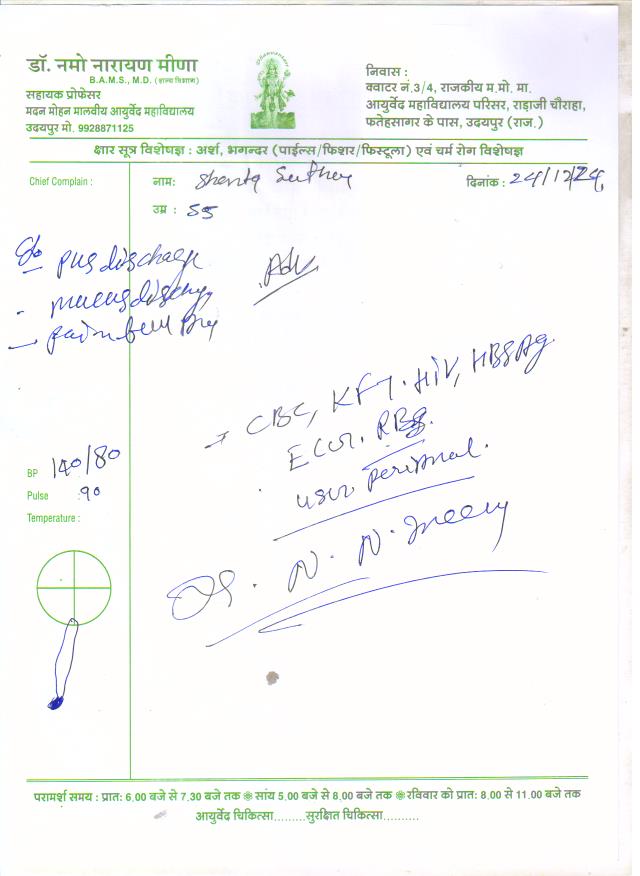 डॉ. नमो नारायण मीणा
B.A.M.S., M.D. (शल्य चिकित्सा)
सहायक प्रोफेसर
मदन मोहन मालवीय आयुर्वेद महाविद्यालय
उदयपुर मो. 9928871125
निवास :
क्वाटर नं.3/4, राजकीय म.मो. मा.
आयुर्वेद महाविद्यालय परिसर, राड़ाजी चौराहा,
फतेहसागर के पास, उदयपुर (राज.)
क्षार सूत्र विशेषज्ञ : अर्श, भगन्दर (पाईल्स/फिशर/फिस्टूला) एवं चर्म रोग विशेषज्ञ
Chief Complain :
नाम: Shanta
दिनांक : 24/12/24
उम्र : 55
c/o pus discharge
- mucus discharge
Adv
→ CBC, KFT. HIV, HBSAg.
ECG. RBS.
USG perianal.
BP 140/80
Pulse : 90
Temperature :
Dr. N. N. Meena
परामर्श समय : प्रात: 6.00 बजे से 7.30 बजे तक ❋ सांय 5.00 बजे से 8.00 बजे तक ❋ रविवार को प्रात: 8.00 से 11.00 बजे तक
आयुर्वेद चिकित्सा.........सुरक्षित चिकित्सा..........